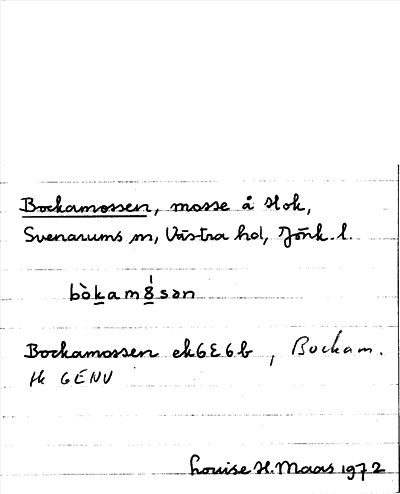 Bockamossen, mosse å Hok,
Svenarums sn, Västra hd, Jönk. l.
bòkamåsən
Bockamossen ek6E6b, Bockam.
Hk 6ENV
Louise H. Maas 1972